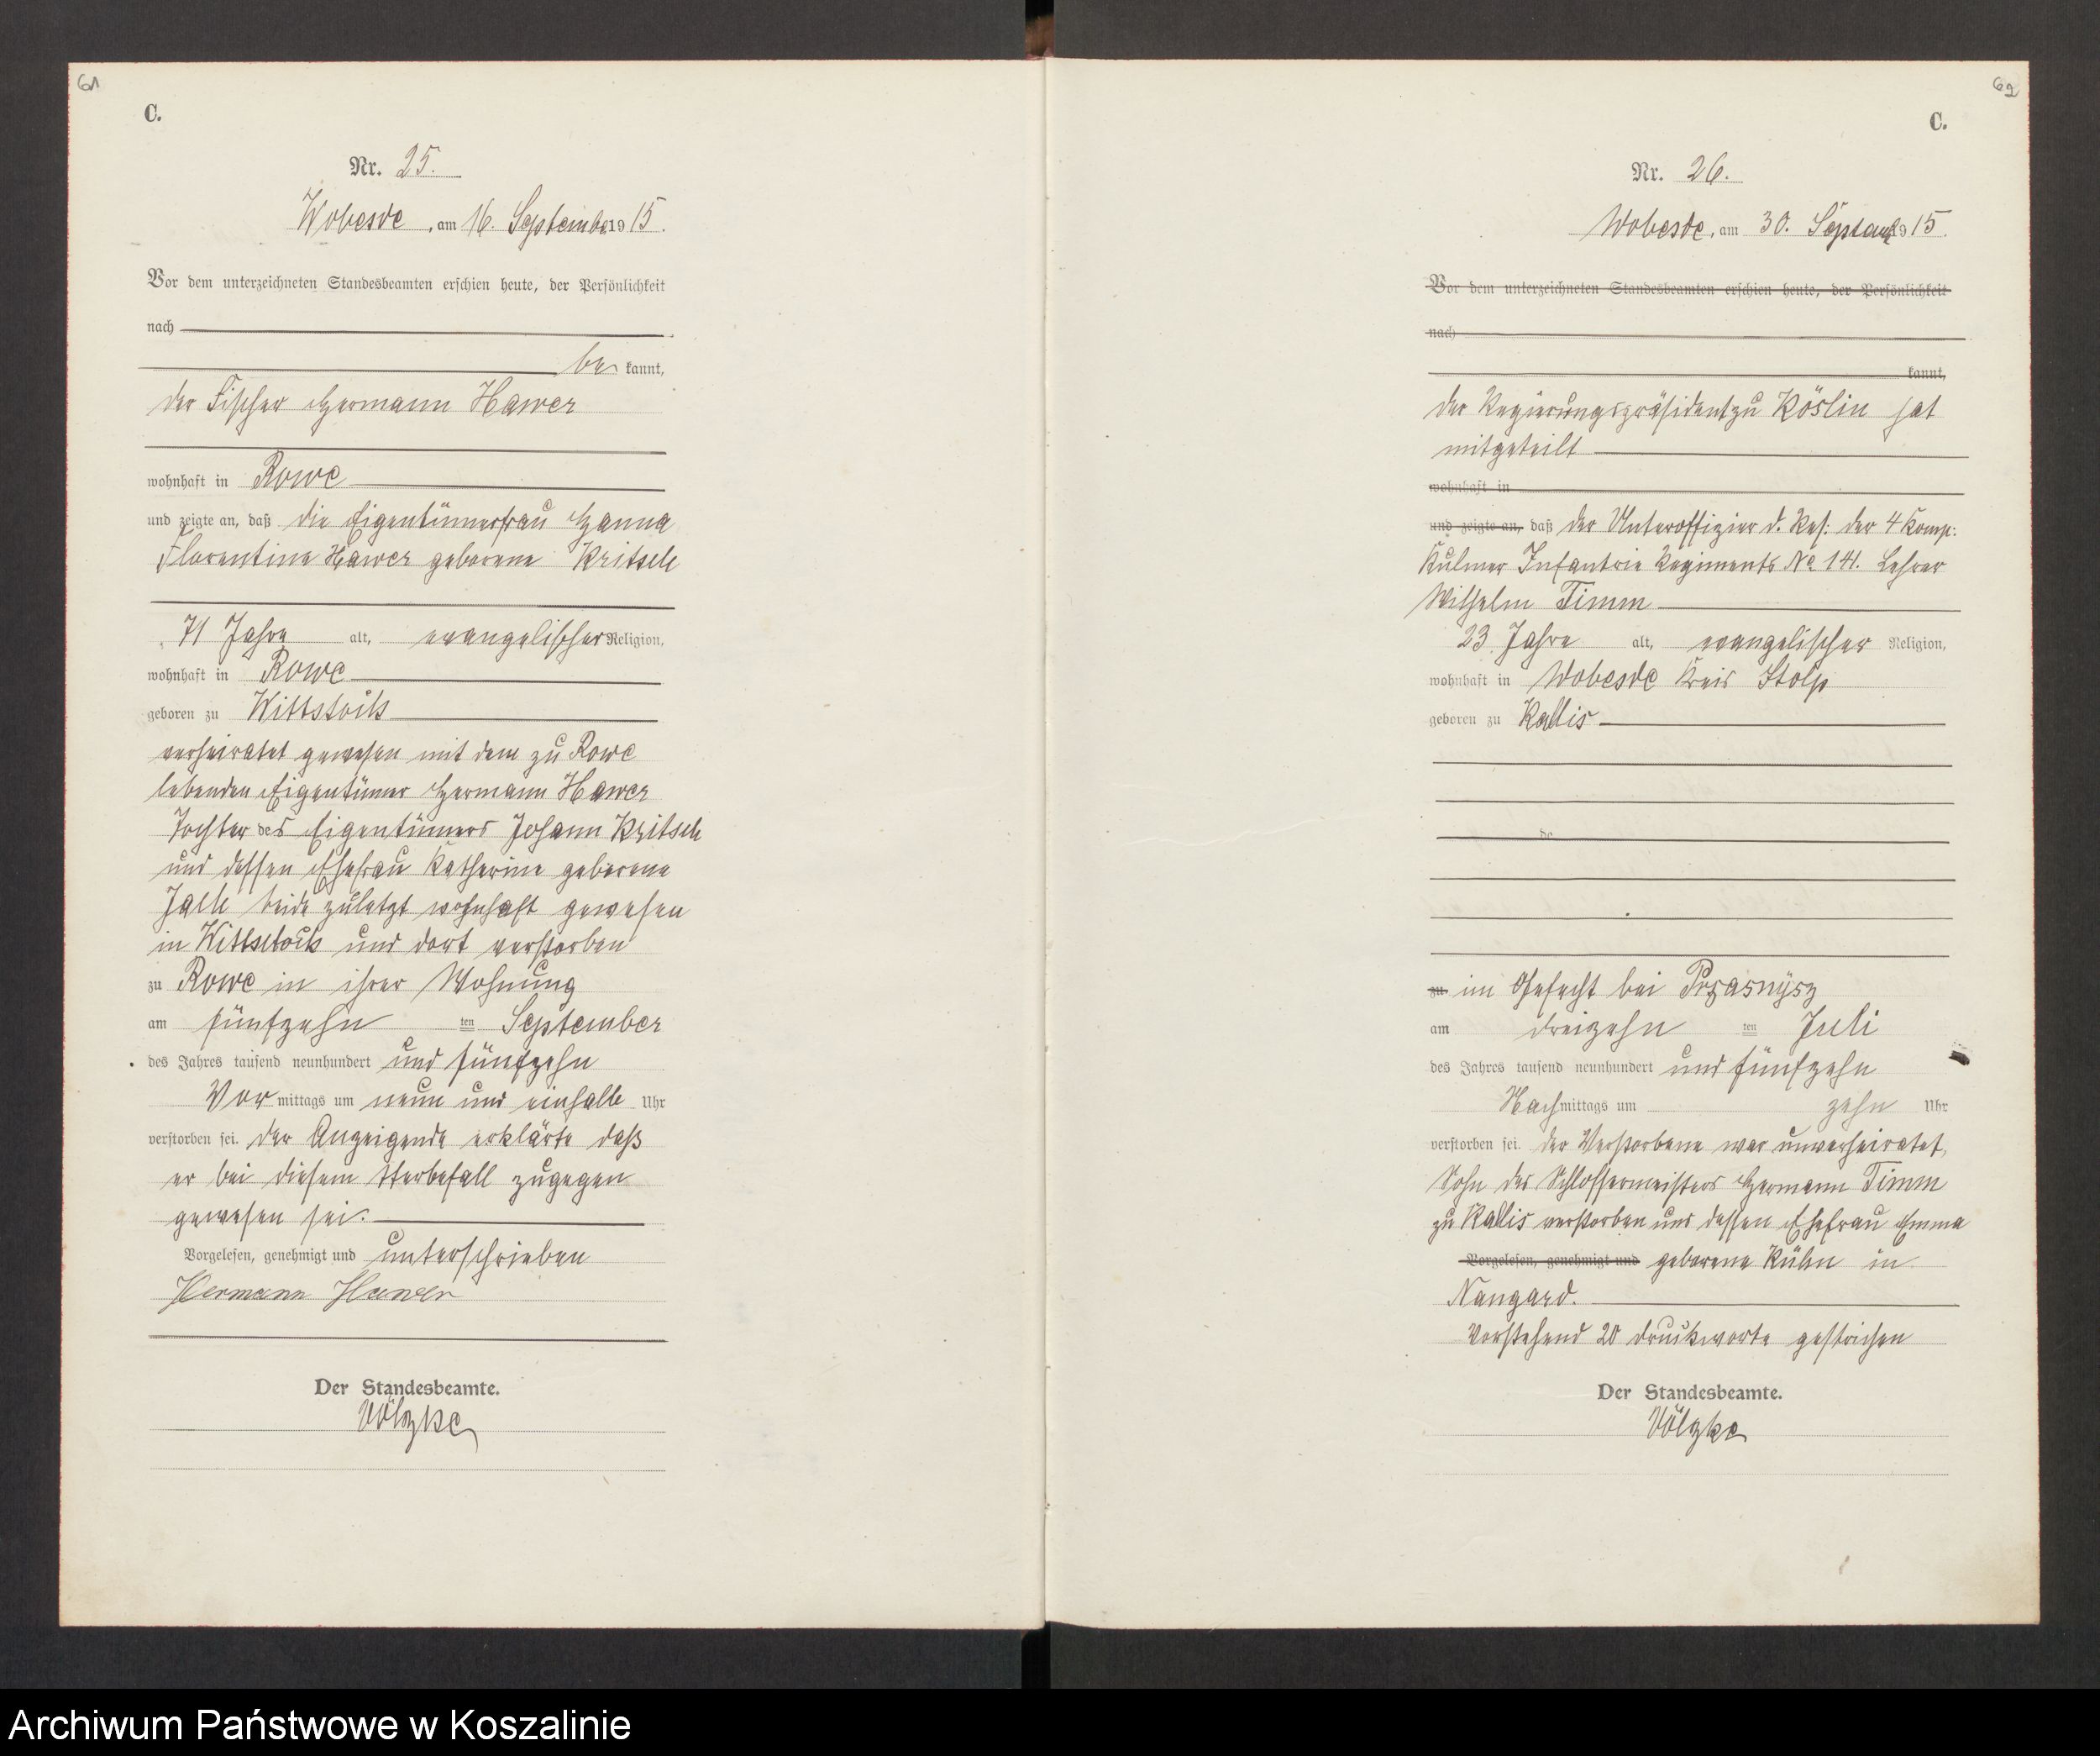 61
C.
Nr. 25.
Wobesde, am 16. September 1915.
Vor dem unterzeichneten Standesbeamten erschien heute, der Persönlichkeit
nach
be kannt,
der Fischer Hermann Hawer
wohnhaft in Rowe
und zeigte an, daß die Eigentümerfrau Hanna
Florentine Hawer geborene Kritsch
71 Jahre alt, evangelischer Religion,
wohnhaft in Rowe
geboren zu Wittstock
verheiratet gewesen mit dem zu Rowe
lebenden Eigentümer Hermann Hawer
Tochter des Eigentümers Johann Kritsch
und dessen Ehefrau Katharine geborene
beide zuletzt wohnhaft gewesen
in Wittstock und dort verstorben
zu Rowe in ihrer Wohnung
am fünfzehn ten September
des Jahres tausend neunhundert und fünfzehn
Vor mittags um neun und einhalb Uhr
verstorben sei. Der Anzeigende erklärte daß
er bei diesem Sterbefall zugegen
gewesen sei.
Vorgelesen, genehmigt und unterschrieben
Hermann Hawer
Der Standesbeamte.
Völzke
62
C.
Nr. 26.
Wobesde, am 30. Septemb 1915.
Vor dem unterzeichneten Standesbeamten erschien heute, der Persönlichkeit
nach
kannt,
der Regierungspräsident zu Köslin hat
mitgeteilt
wohnhaft in
und zeigte an, daß der Unteroffizier d. Res: der 4 Komp:
Kulmer Infantrie Regiments No 141. Lehrer
Wilhelm Timm
23 Jahre alt, evangelischer Religion,
wohnhaft in Wobesde Kreis Stolp
geboren zu Kallis
de
zu im Gefecht bei Prasnysz
am dreizehn ten Juli
des Jahres tausend neunhundert und fünfzehn
Nach mittags um zehn Uhr
verstorben sei. Der Verstorbene war unverheiratet,
Sohn des Schlossermeisters Hermann Timm
zu Kallis verstorben und dessen Ehefrau Emma
Vorgelesen, genehmigt und geborene Kühn in
Naugard.
Vorstehend 20 Druckworte gestrichen
Der Standesbeamte.
Völzke
Archiwum Państwowe w Koszalinie